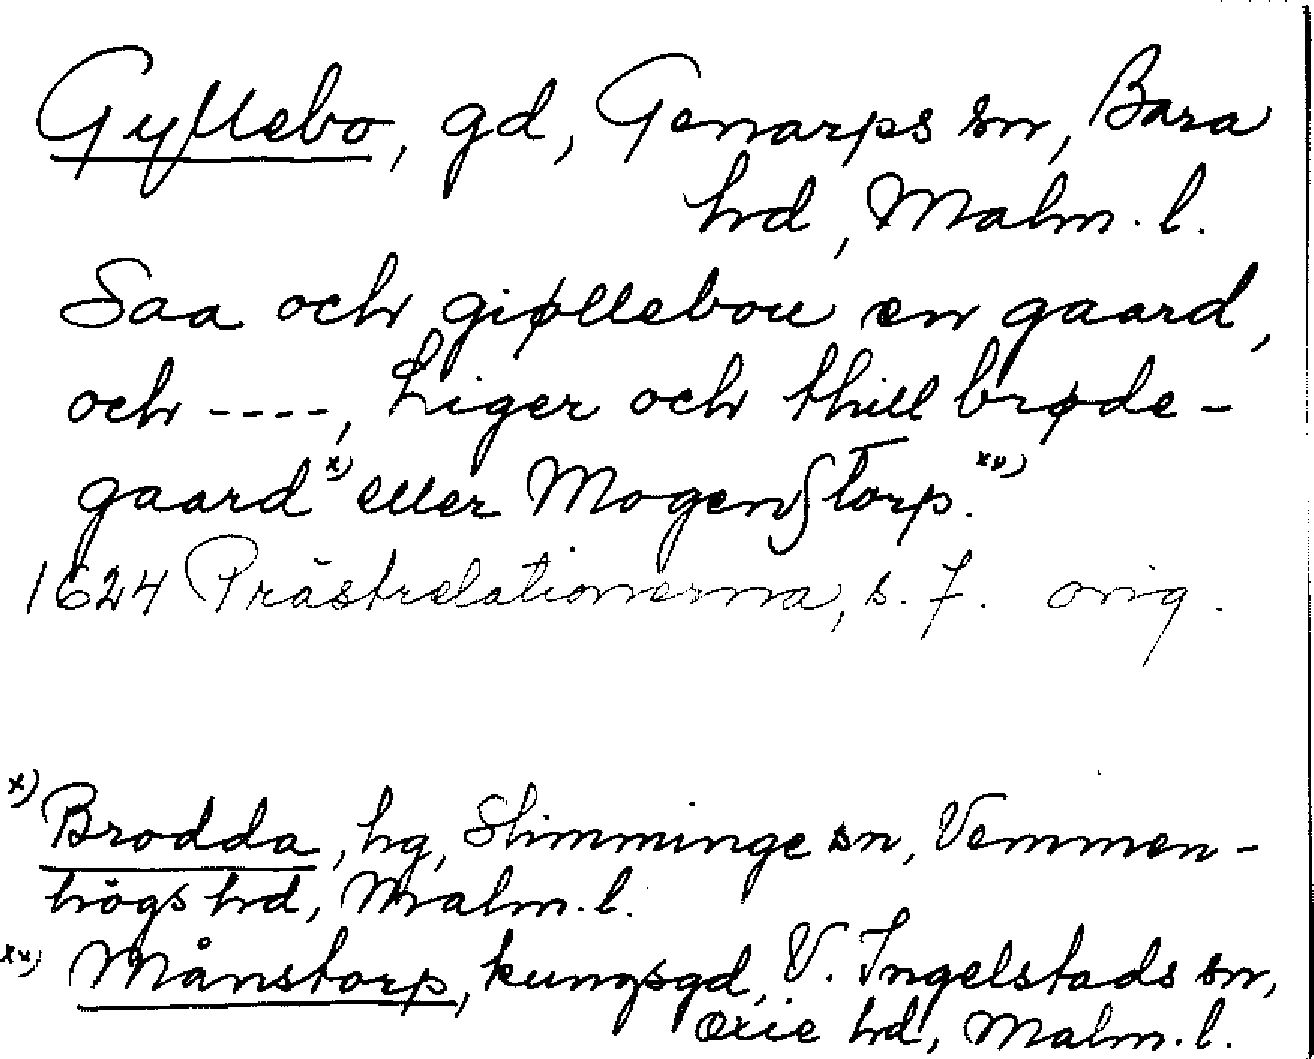 Gyllebo, gd, Genarps sn, Bara
hd, Malm. l.
Saa och giøllebou en gaard,
och ----, Liger och thill brøde-
gaard x) eller Mogenstorp. xx)
1624 Prästrelationerna, s. 7. orig.
x) Brodda, hg, Slimminge sn, Vemmen-
högs hd, Malm. l.
xx) Månstorp, kungsgd, V. Ingelstads sn,
Oxie hd, Malm. l.